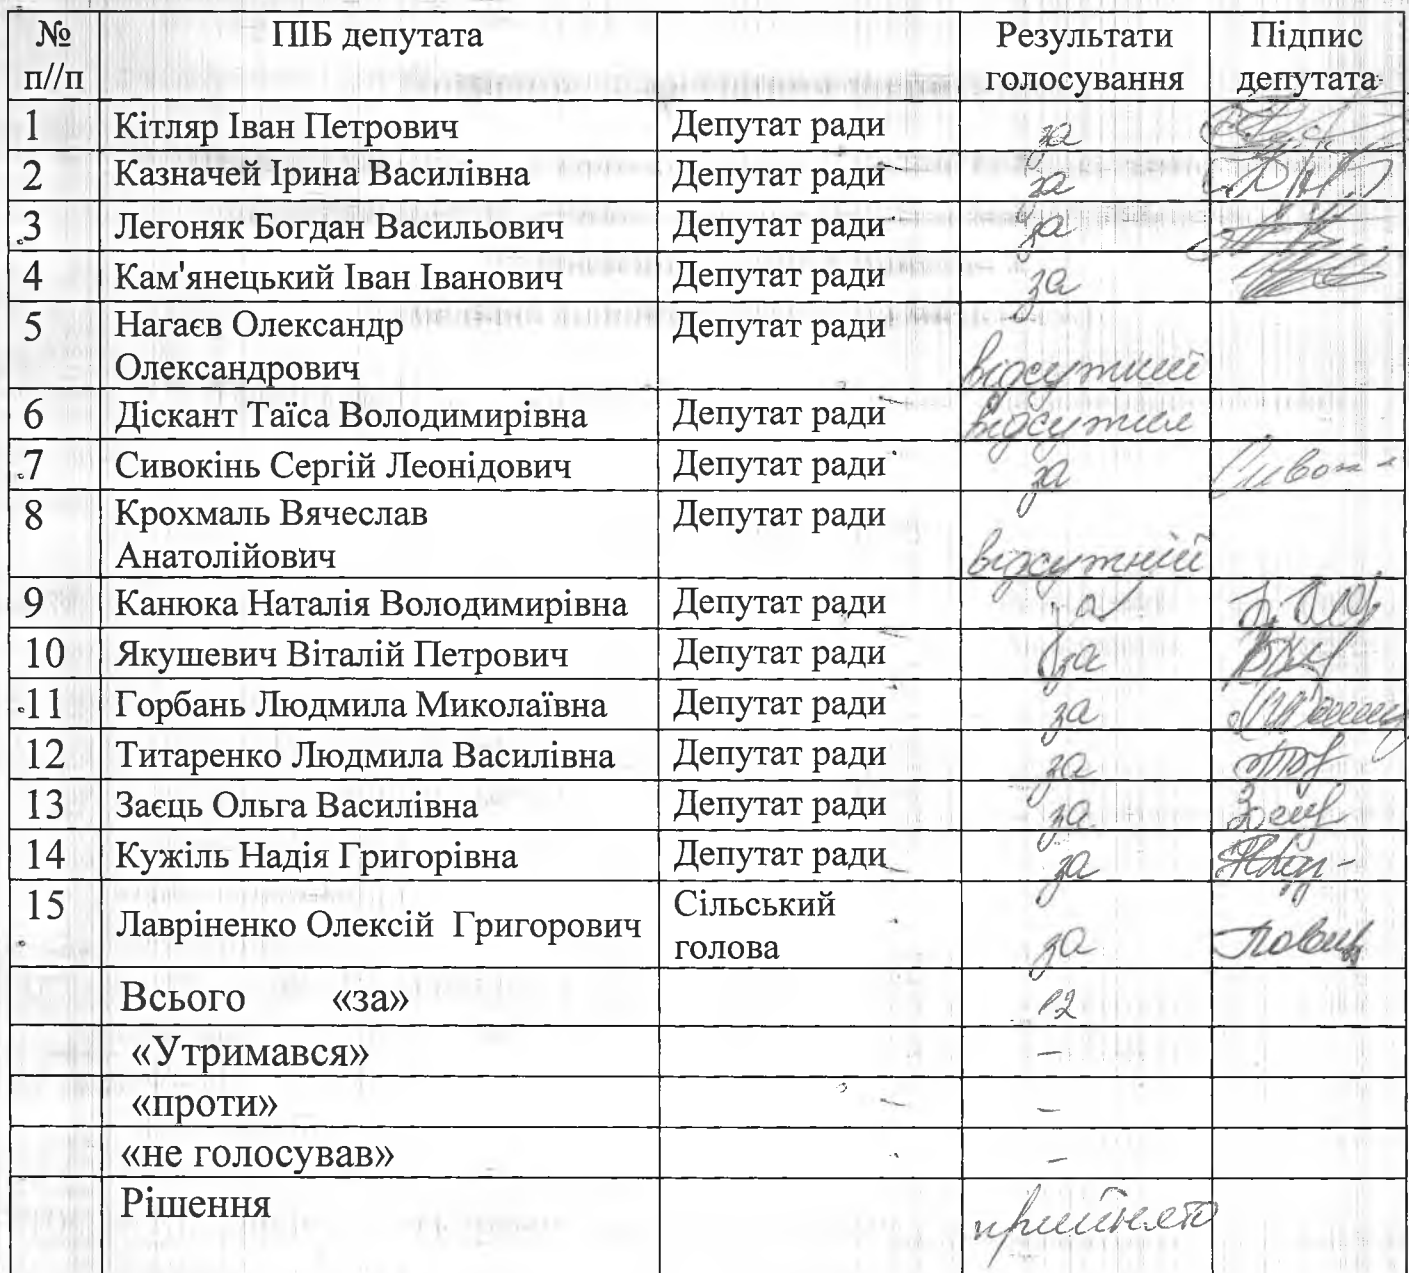 № ПІБ депутата Результати Підпис
п//п голосування депутата
1 Кітляр Іван Петрович Депутат ради за
2 Казначей Ірина Василівна Депутат ради за
3 Легоняк Богдан Васильович Депутат ради за
4 Кам'янецький Іван Іванович Депутат ради за
5 Нагаєв Олександр Депутат ради
Олександрович відсутній
6 Діскант Таїса Володимирівна Депутат ради відсутня
7 Сивокінь Сергій Леонідович Депутат ради за
8 Крохмаль Вячеслав Депутат ради
Анатолійович відсутній
9 Канюка Наталія Володимирівна Депутат ради за
10 Якушевич Віталій Петрович Депутат ради за
11 Горбань Людмила Миколаївна Депутат ради за
12 Титаренко Людмила Василівна Депутат ради за
13 Заєць Ольга Василівна Депутат ради за
14 Кужіль Надія Григорівна Депутат ради за
15 Сільський
Лавріненко Олексій Григорович голова за
Всього «за» 12
«Утримався» –
«проти» –
«не голосував» –
Рішення прийнято